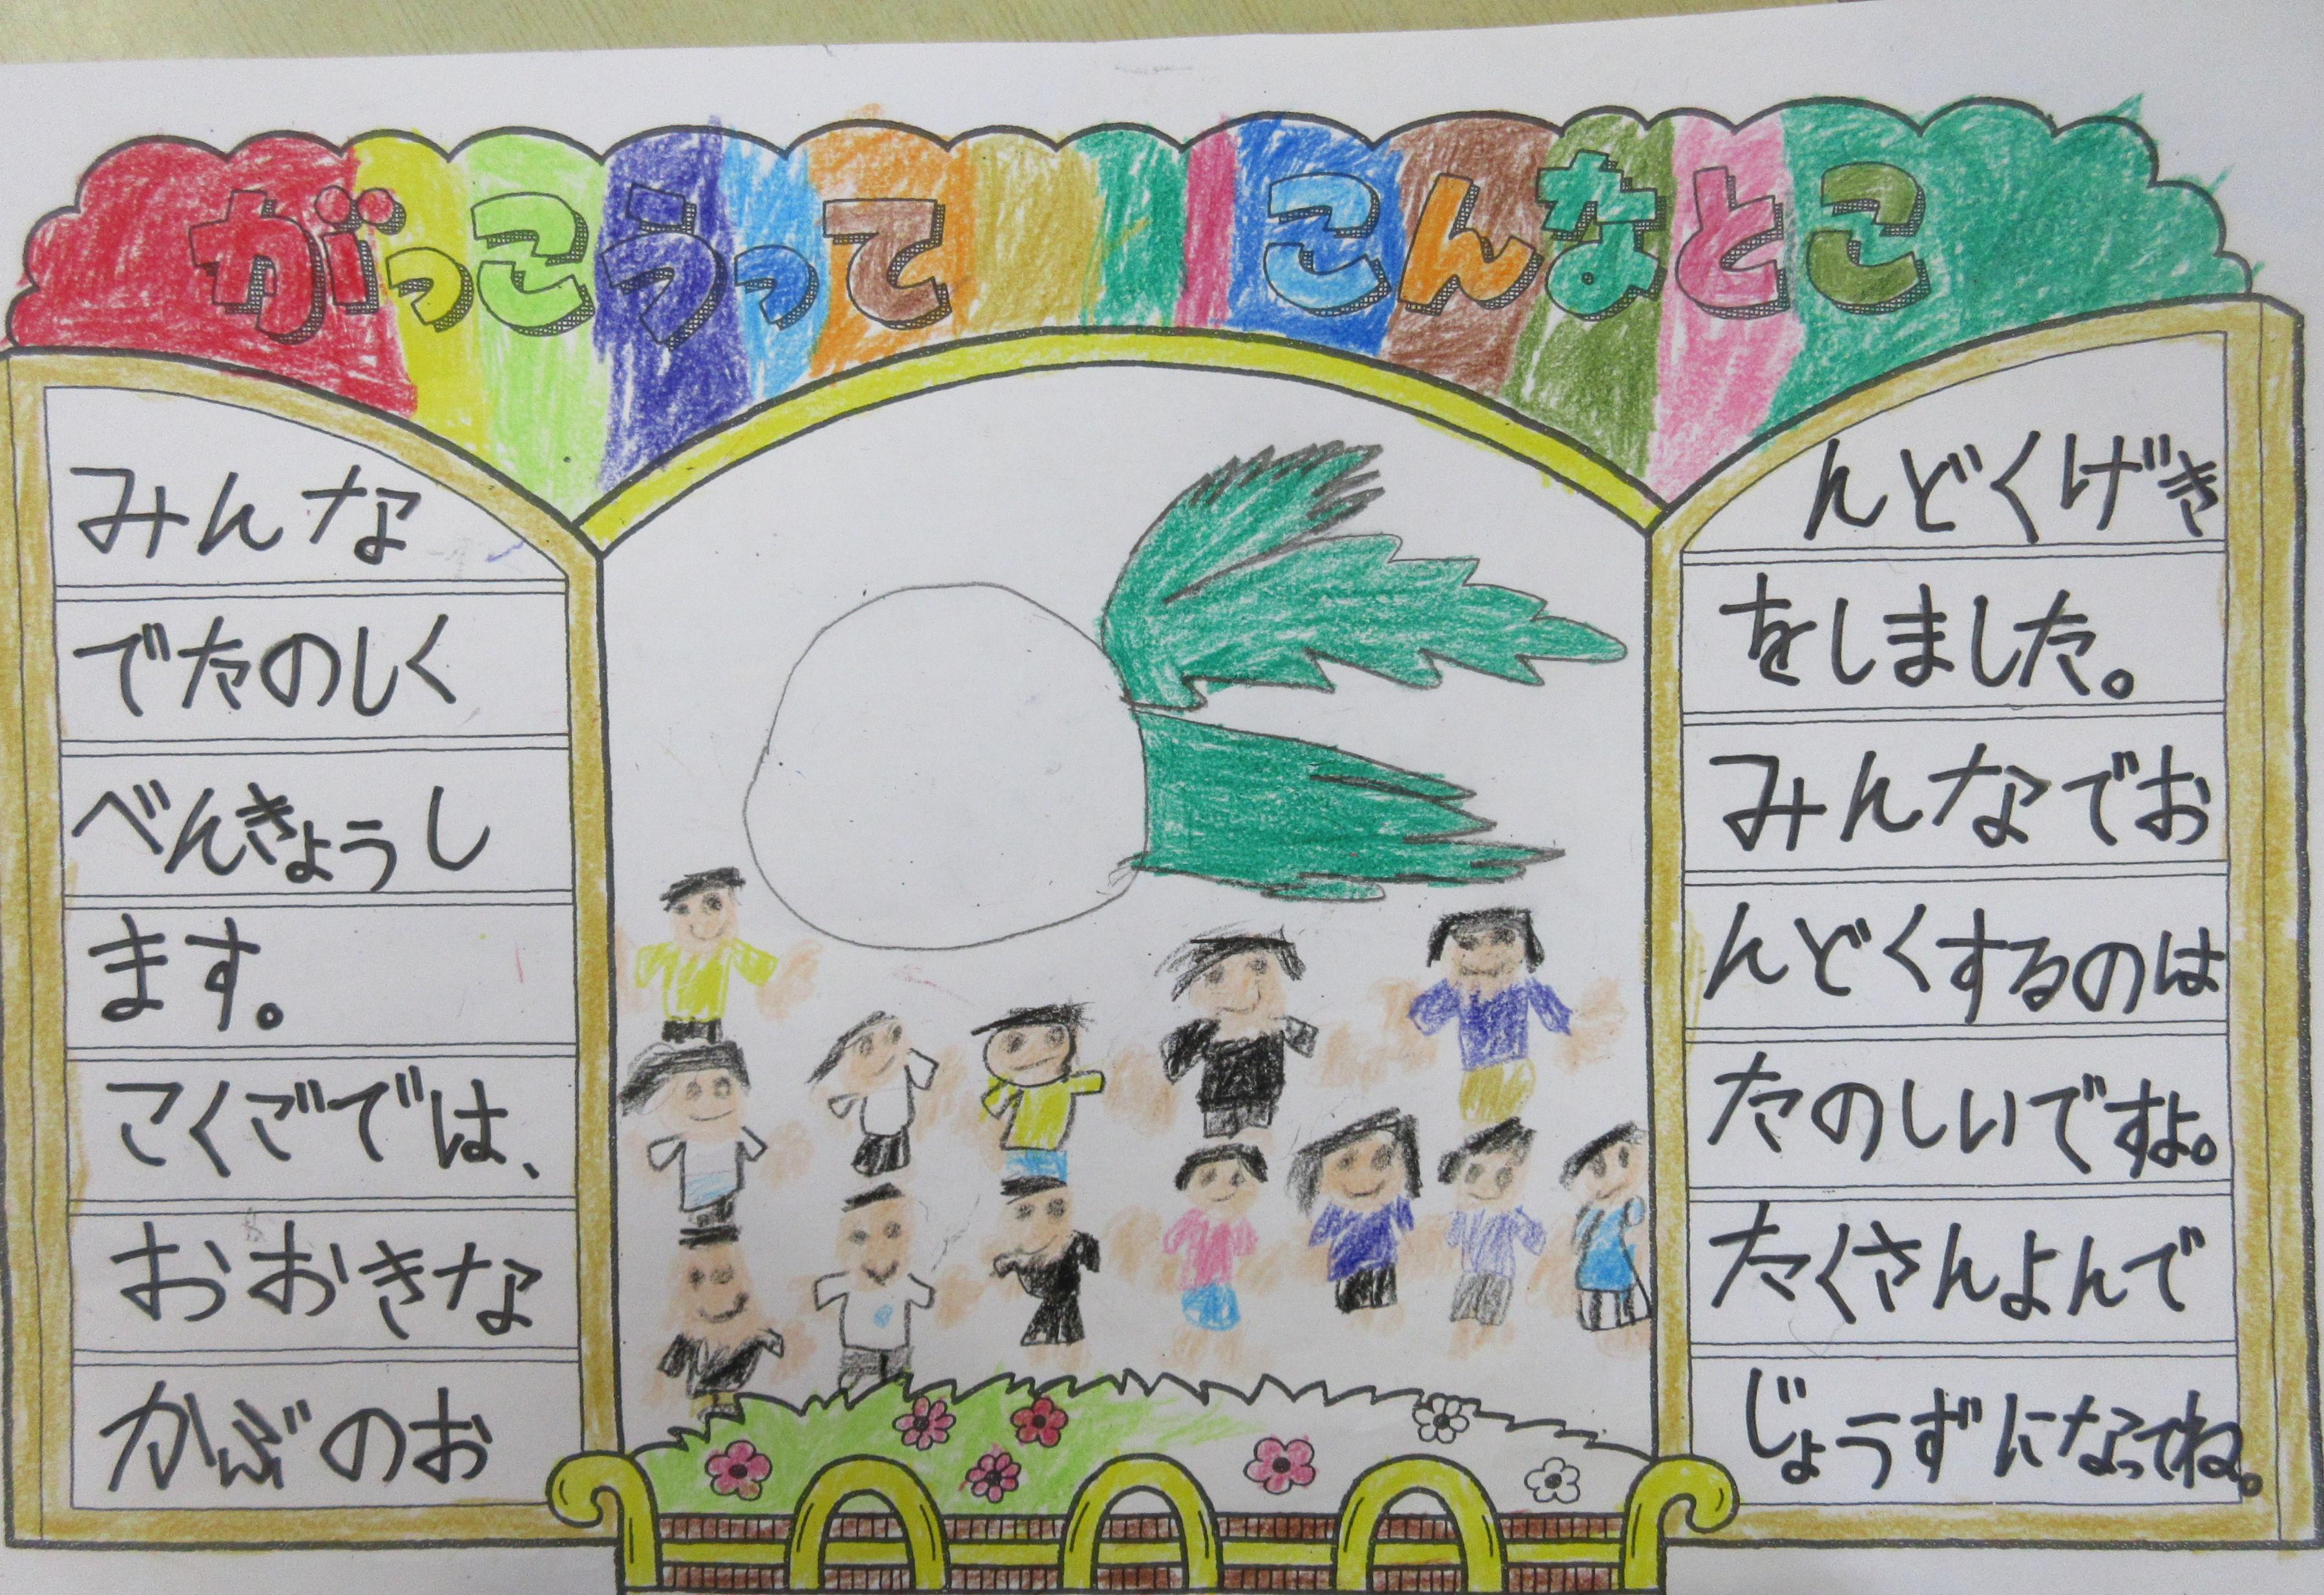 がっこうって こんなとこ
みんな
でたのしく
べんきょうし
ます。
こくごでは、
おおきな
かぶのお
んどくげき
をしました。
みんなでお
んどくするのは
たのしいですよ。
たくさんよんで
じょうずになってね。